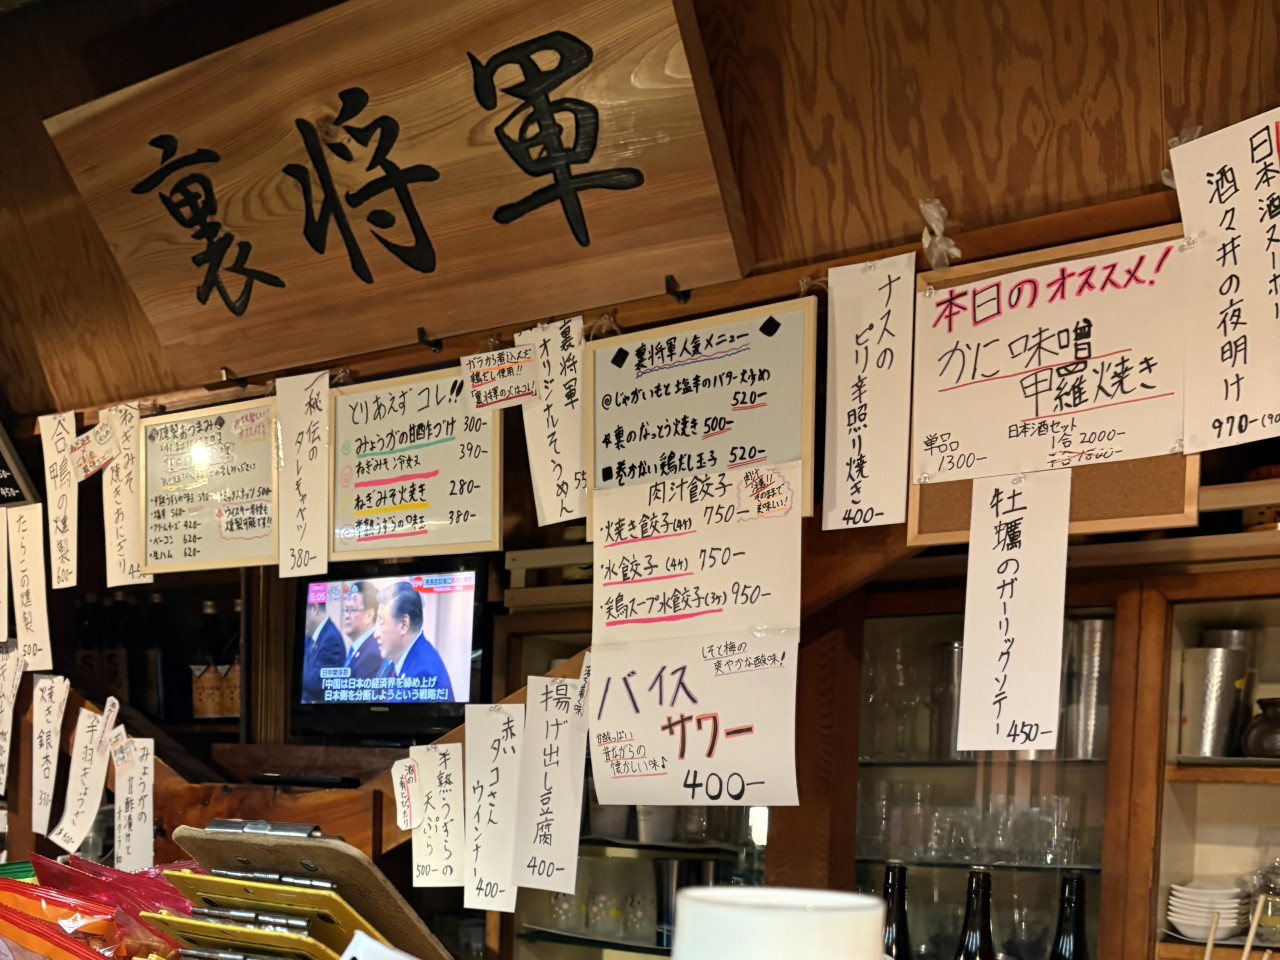 裏将軍
合鴨の燻製
600-
ねぎみそ
焼きおにぎり
たらこの燻製
500-
燻製おつまみ
・ベーコン 620-
・生ハム 620-
秘伝の
タレキャベツ
380-
とりあえずコレ!!
みょうがの甘酢づけ 300-
ねぎみそ冷奴 390-
ねぎみそ火焼き 280-
半熟うずらの味玉 380-
ガラから煮込んだ
鶏だし使用!!
裏将軍の〆はコレ!
裏将軍
オリジナルそうめん
◆裏将軍人気メニュー◆
@じゃがいもと塩辛のバター炒め
520-
裏のなっとう焼き 500-
■巻かない鶏だし玉子 520-
肉汁餃子
肉汁
そのままで
美味しい!
・焼き餃子(4ヶ) 750-
・水餃子(4ヶ) 750-
・鶏スープ水餃子(3ヶ) 950-
しそと梅の
爽やかな酸味!
バイス
サワー
甘酸っぱい
昔ながらの
懐かしい味♪
400-
ナスの
ピリ辛照り焼き
400-
本日のオススメ!
かに味噌
甲羅焼き
単品
1300-
日本酒セット
1合 2000-
酒々井の夜明け
970-
牡蠣のガーリックソテー
450-
5:05
日中関係筋
「中国は日本の経済界を締め上げ
日本側を分断しようという戦略だ」
焼き銀杏
手羽ぎょうざ
みょうがの
甘酢漬けと
半熟うずらの
天ぷら
500-
赤い
タコさん
ウインナー
400-
揚げ出し豆腐
400-